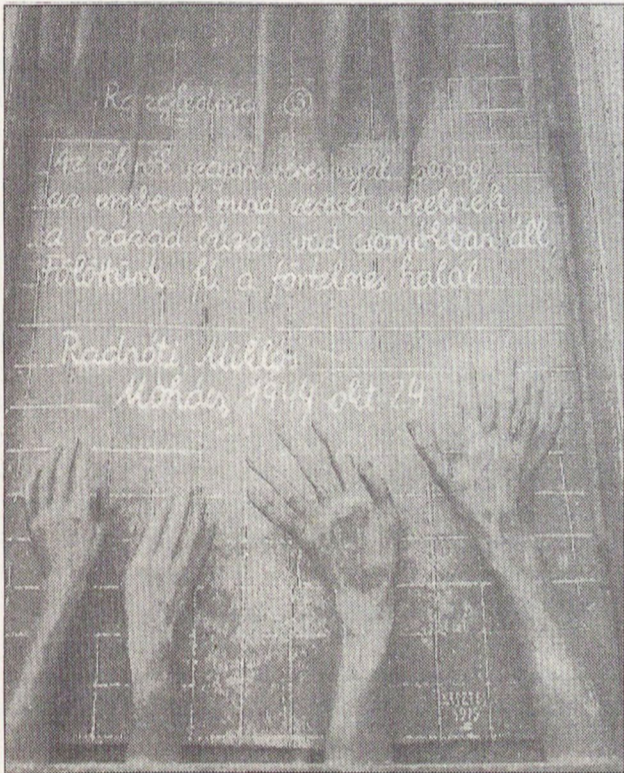 Razglednica (3)
Az ökrök száján véres nyál csorog,
az emberek mind véreset vizelnek,
a század bűzös, vad csomókban áll,
Fölöttünk fú a förtelmes halál
Radnóti Miklós
Mohács, 1944 okt 24